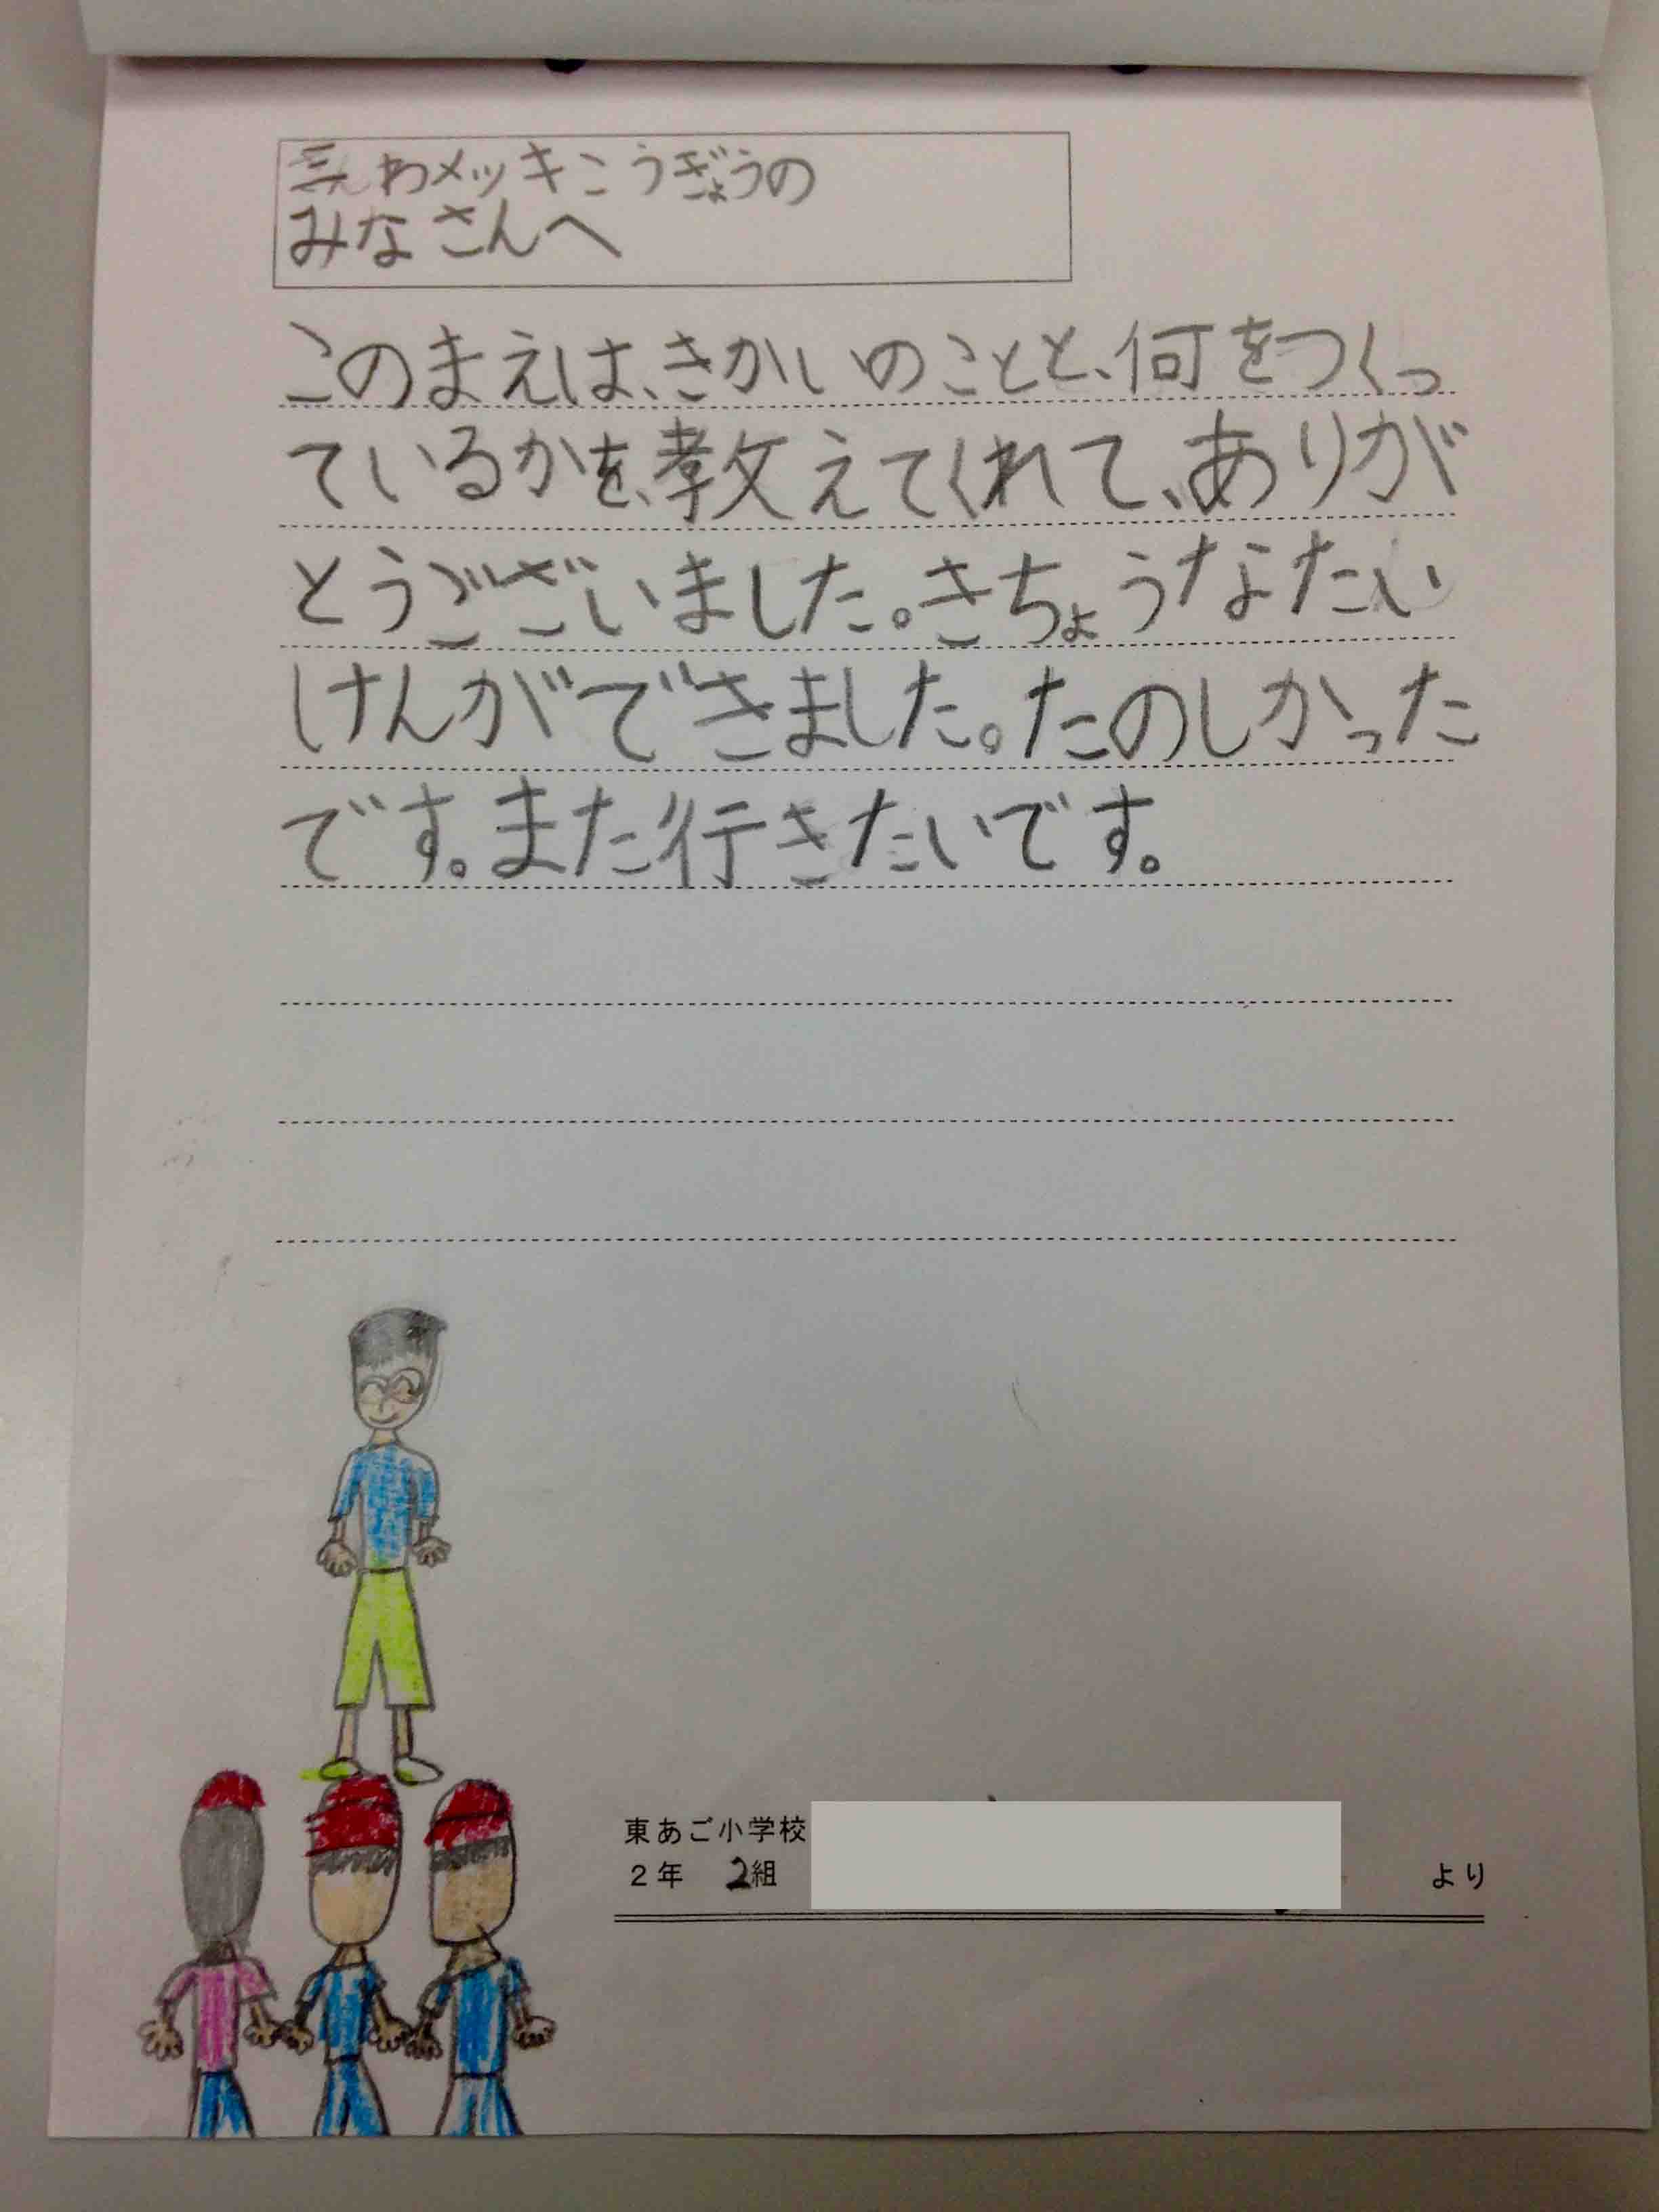 三わメッキこうぎょうの
みなさんへ
このまえは、きかいのことと、何をつくっ
ているかを、教えてくれて、ありが
とうございました。きちょうなたい
けんができました。たのしかった
です。また行きたいです。
東あご小学校
2年 2組 より